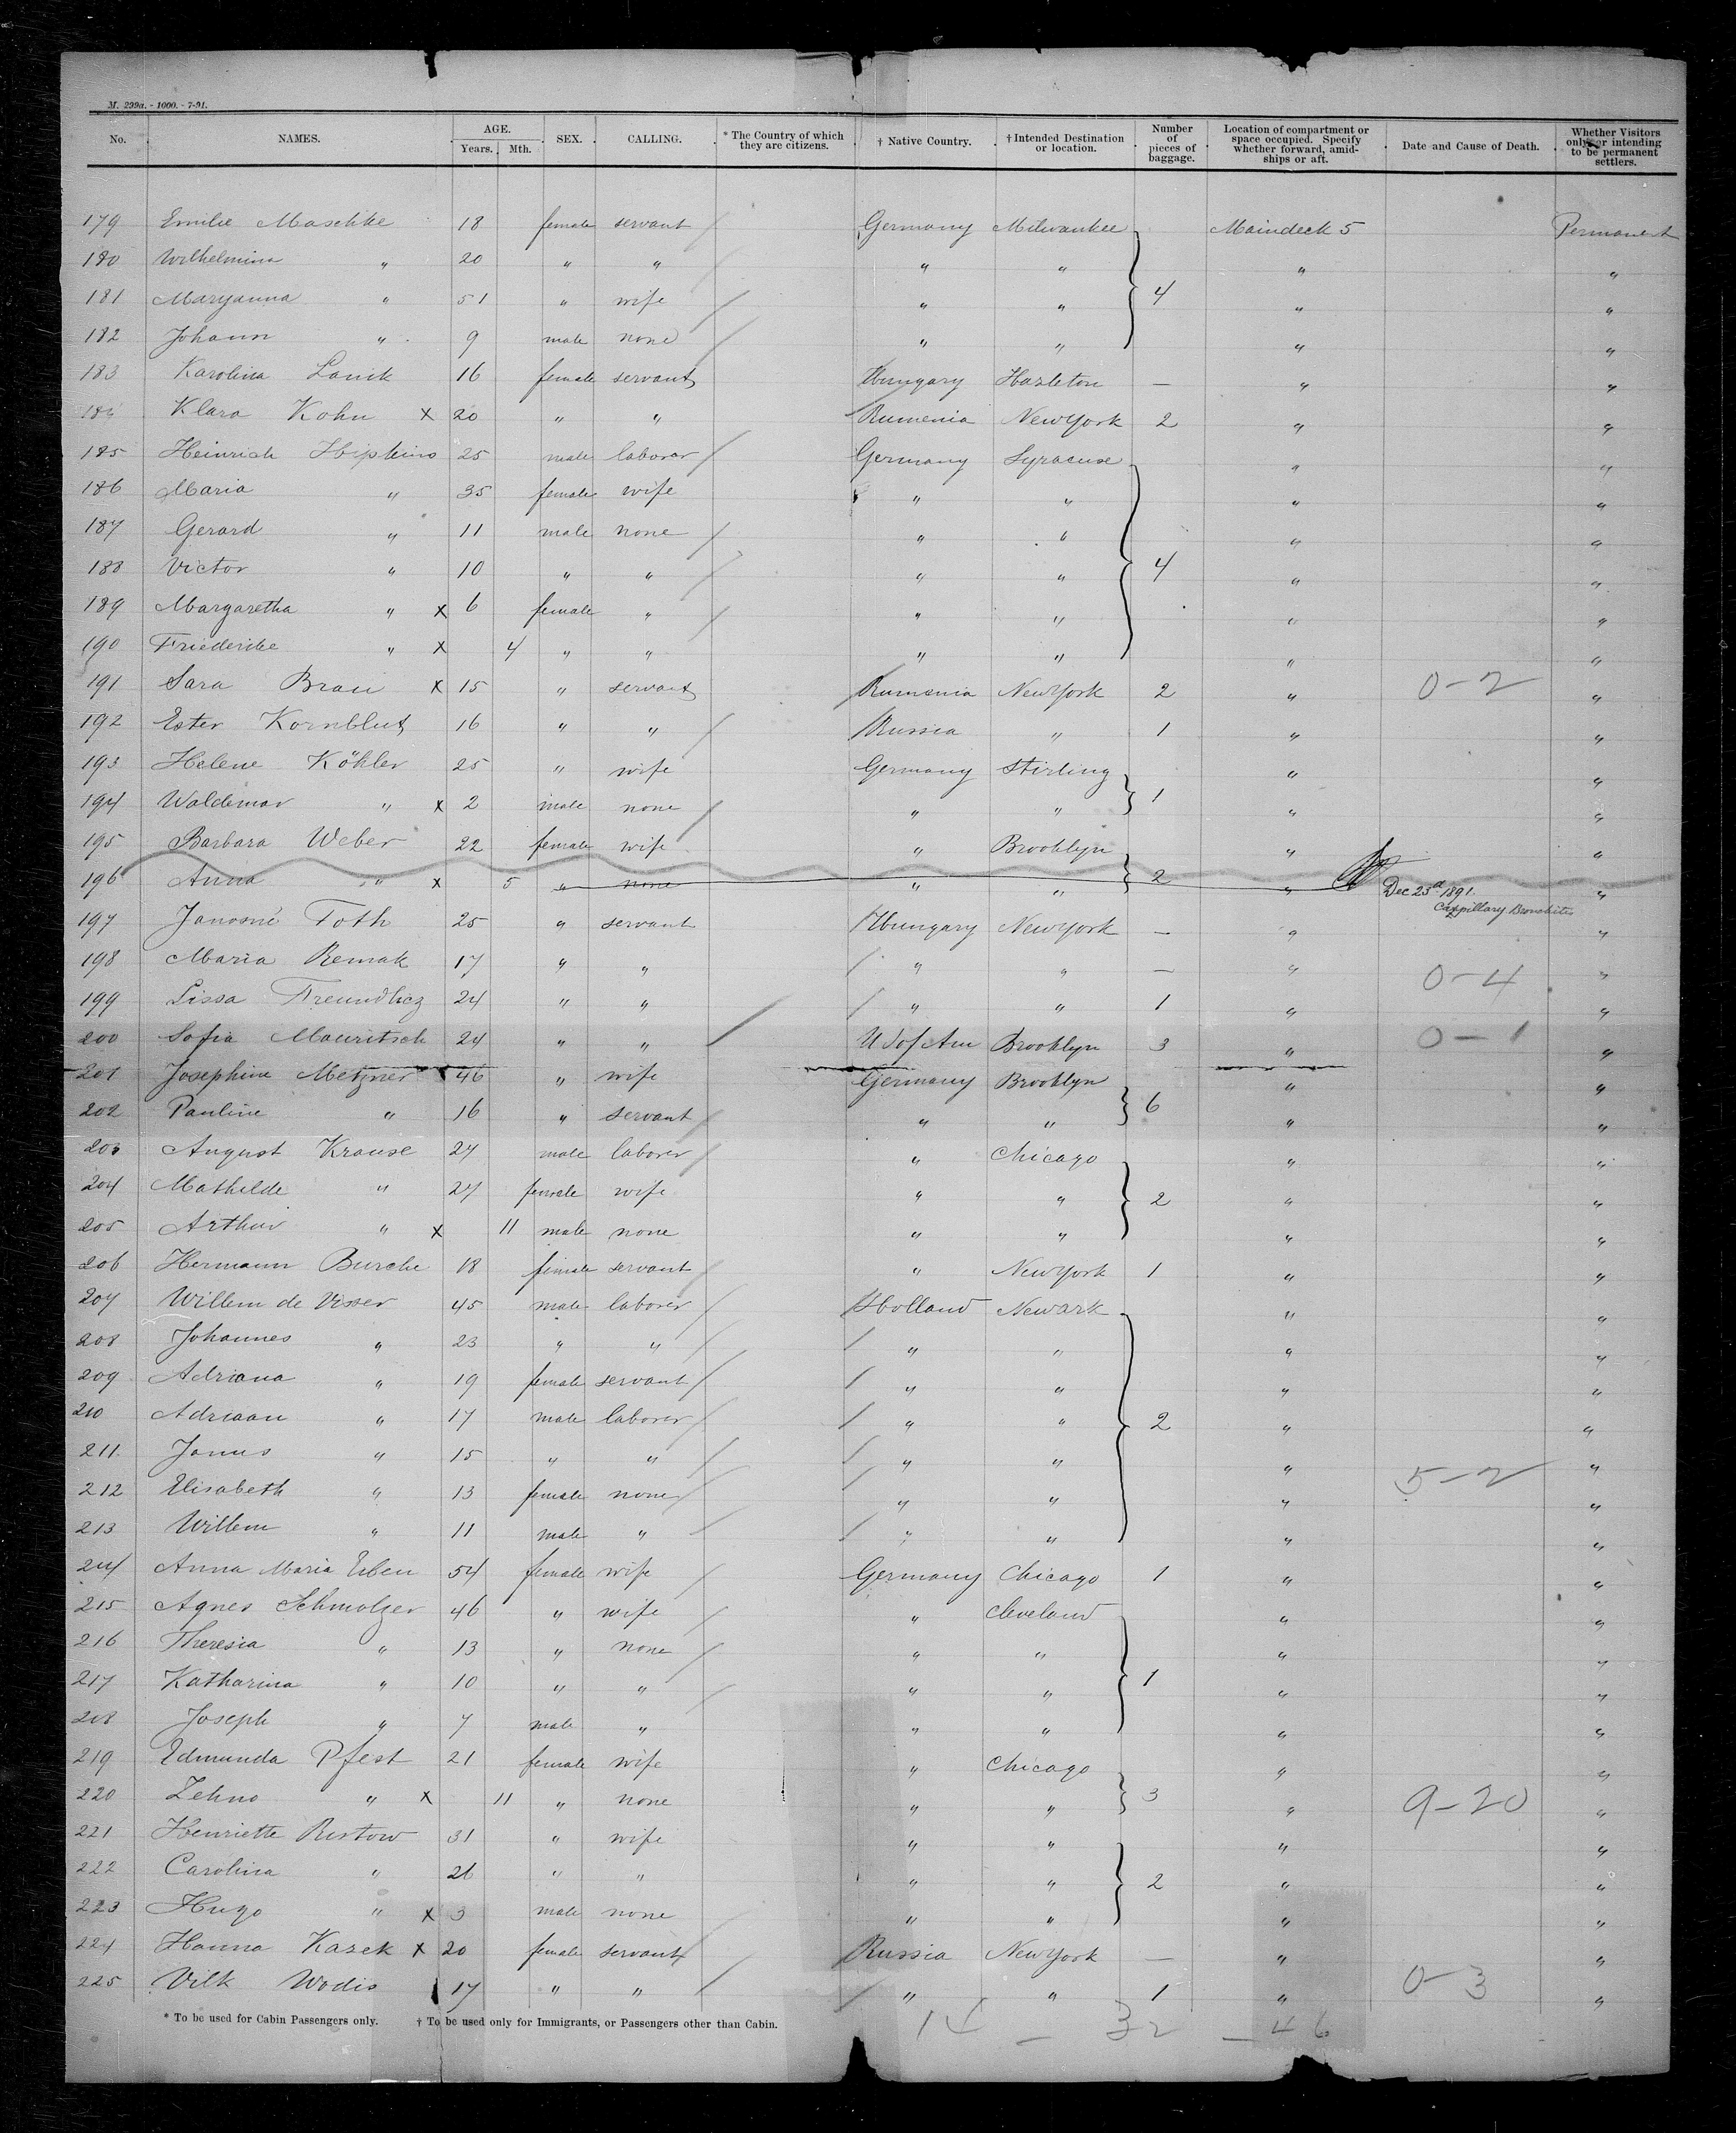 M. 299a. - 1000. - 7-91.
No. NAMES. AGE. Years. Mth. SEX. CALLING. * The Country of which they are citizens. † Native Country. † Intended Destination or location. Number of pieces of baggage. Location of compartment or space occupied. Specify whether forward, amidships or aft. Date and Cause of Death. Whether Visitors only or intending to be permanent settlers.
179 Emilie Maschke 18 female servant Germany Milwaukee Maindeck 5 Permanent
180 Wilhelmina " 20 " " " " " "
181 Maryanna " 51 " wife " " 4 " "
182 Johann " 9 male none " " " "
183 Karolina Lanik 16 female servant Hungary Hazleton — " "
184 Klara Kohn X 20 " " Rumenia NewYork 2 " "
185 Heinrich Hipkins 25 male laborer Germany Syracuse " "
186 Maria " 35 female wife " " " "
187 Gerard " 11 male none " " " "
188 Victor " 10 " " " " 4 " "
189 Margaretha " X 6 female " " " " "
190 Friederike " X 4 " " " " " "
191 Sara Braü X 15 " servant Rumenia NewYork 2 " 0-2 "
192 Ester Kornblut 16 " " Russia " 1 " "
193 Helene Köhler 25 " wife Germany Stirling " "
194 Waldemar " X 2 male none " " 1 " "
195 Barbara Weber 22 female wife " Brooklyn " "
196 Anna " X 5 " none " " 2 " Dec 25d 1891. Cappillary Bronchitis "
197 Janosné Toth 25 " servant Hungary NewYork — " "
198 Maria Remak 17 " " " " — " 0-4 "
199 Lissa Freundlicz 24 " " " " 1 " "
200 Sofia Mauritsch 24 " " U S of Am Brooklyn 3 " 0-1 "
201 Josephine Metzner 46 " wife Germany Brooklyn " "
202 Pauline " 16 " servant " " 6 " "
203 August Krause 27 male laborer " Chicago " "
204 Mathilde " 27 female wife " " 2 " "
205 Arthur " X 11 male none " " " "
206 Hermann Burche 18 female servant " NewYork 1 " "
207 Willem de Visser 45 male laborer Holland Newark " "
208 Johannes " 23 " " " " " "
209 Adriana " 19 female servant " " " "
210 Adriaan " 17 male laborer " " 2 " "
211 Janus " 15 " " " " " "
212 Elisabeth " 13 female none " " " 5-2 "
213 Willem " 11 male " " " " "
214 Anna Maria Erben 54 female wife Germany Chicago 1 " "
215 Agnes Schmolzer 46 " wife " Cleveland " "
216 Theresia " 13 " none " " " "
217 Katharina " 10 " " " " 1 " "
218 Joseph " 7 male " " " " "
219 Edmunda Pfest 21 female wife " Chicago " "
220 Zehno " X 11 " none " " 3 " 9-20 "
221 Henriette Ristow 31 " wife " " " "
222 Carolina " 26 " " " " 2 " "
223 Hugo " X 3 male none " " " "
224 Hanna Kasek X 20 female servant Russia NewYork — " "
225 Vilk Wodis 17 " " " " 1 " 0-3 "
* To be used for Cabin Passengers only. † To be used only for Immigrants, or Passengers other than Cabin.
14 — 32 — 46